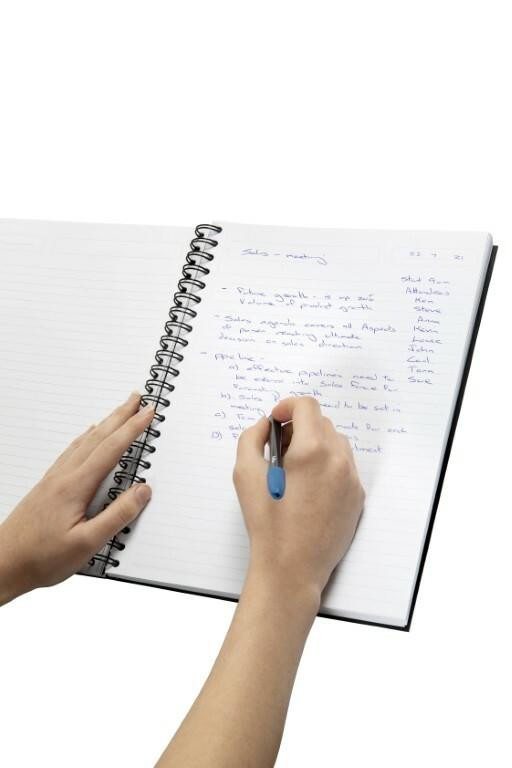 Sales - meeting
22 7 21
Start 9am
Attendees
Ken
Steve
Anna
Kevin
Louise
John
Carl
Tann
Sue
- Future growth - is up 20%
Volume of product growth
- Sales agenda covers all Aspects
of person reaching ultimate
decision on sales direction
- Pipeline -
a) effective pipelines need to
be entered into Sales force for
growth
b) Sales need to be set in
meeting
c) made for each
sales
D)